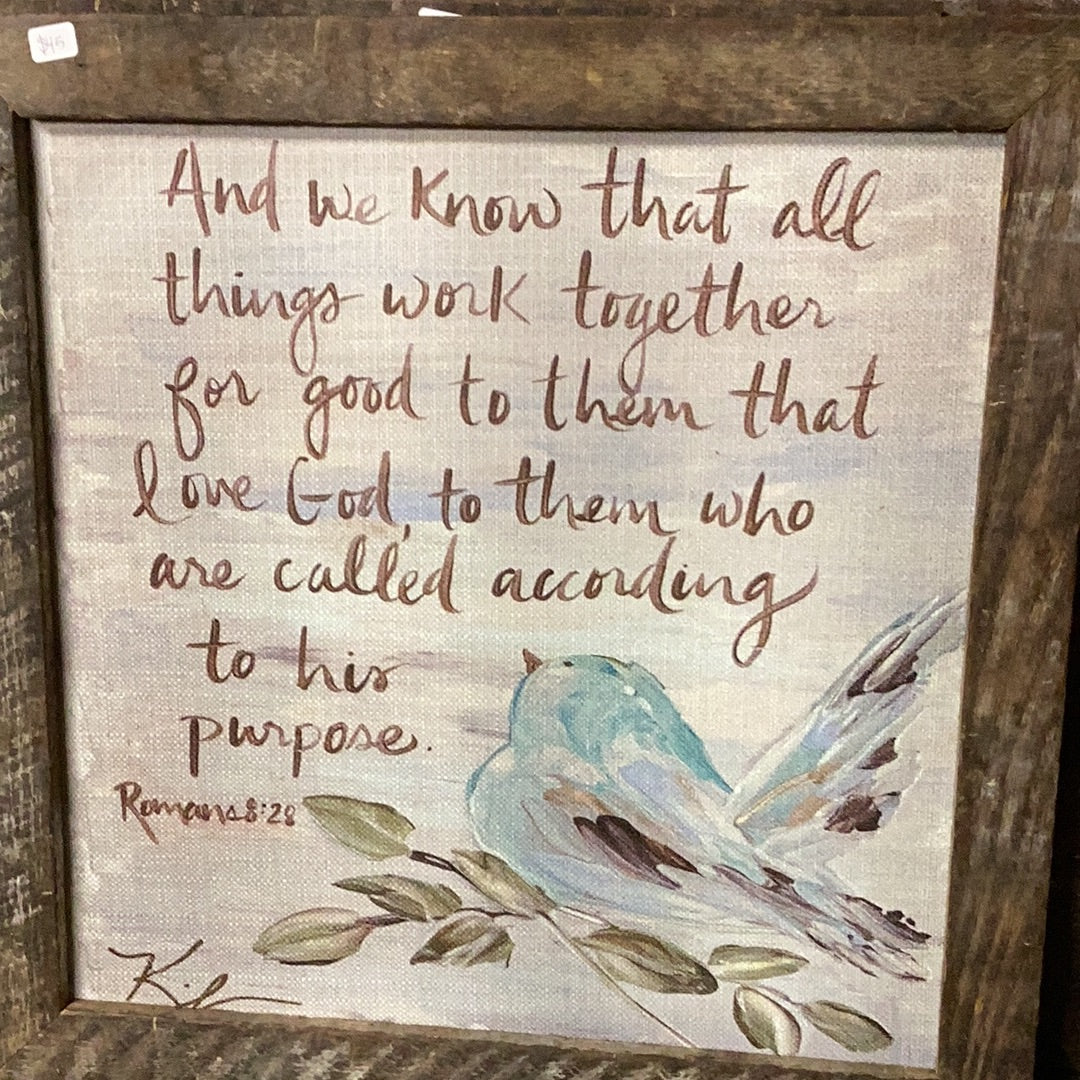 $45
And we know that all
things work together
for good to them that
love God, to them who
are called according
to his
purpose.
Romans 8:28